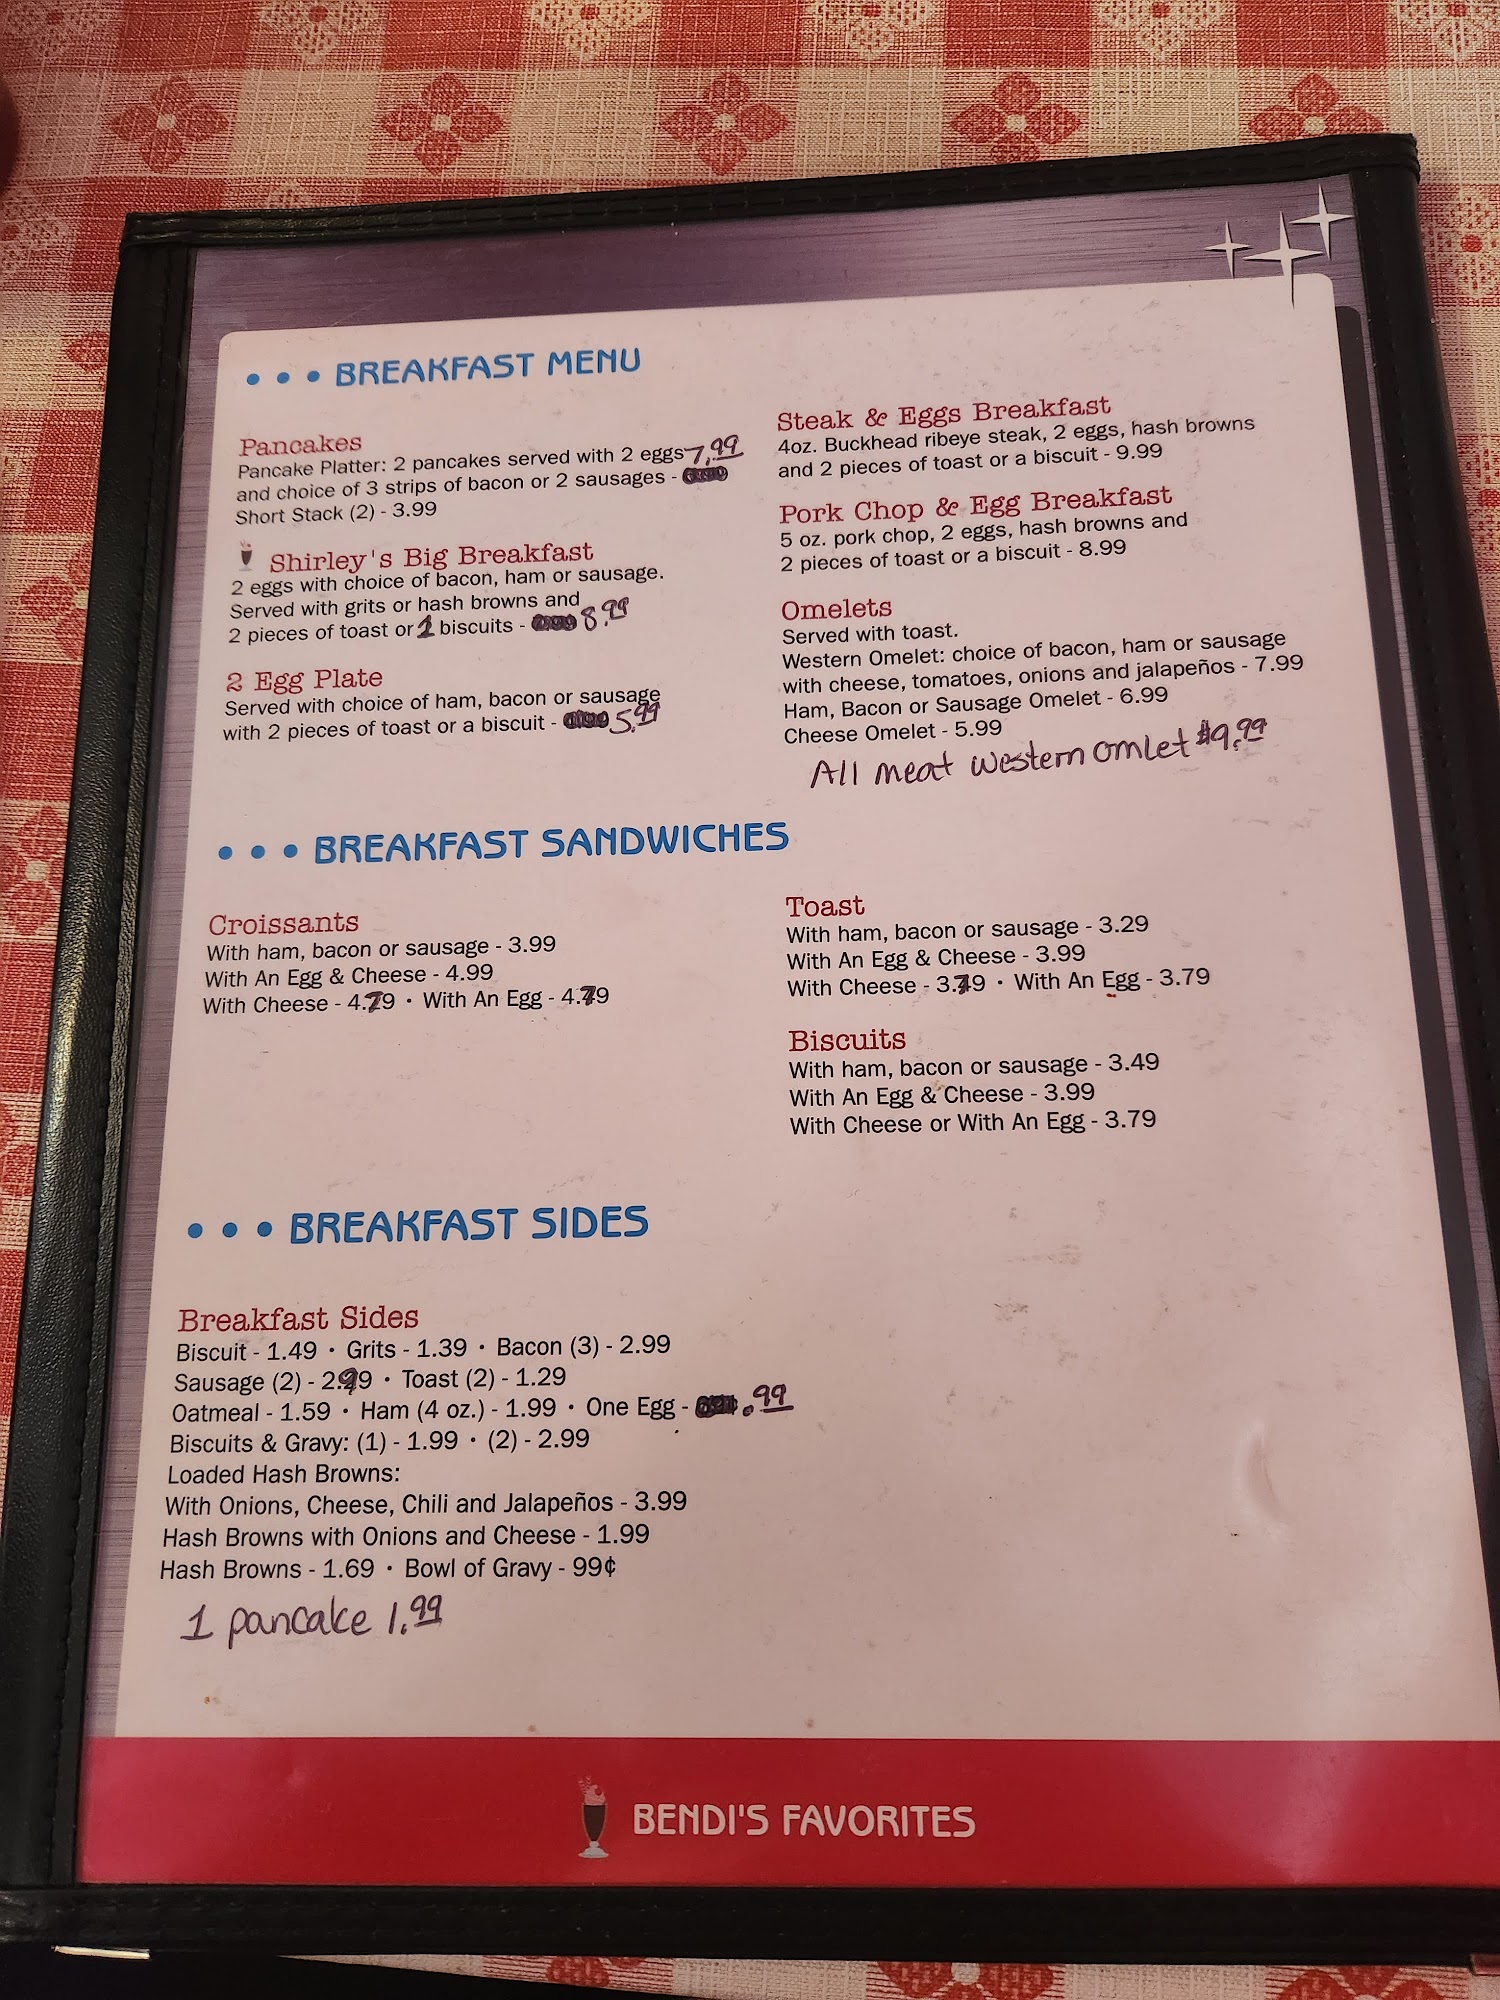 BREAKFAST MENU
Pancakes
Pancake Platter: 2 pancakes served with 2 eggs 7.99
and choice of 3 strips of bacon or 2 sausages -
Short Stack (2) - 3.99
Shirley's Big Breakfast
2 eggs with choice of bacon, ham or sausage.
Served with grits or hash browns and
2 pieces of toast or 1 biscuits - 8.99
2 Egg Plate
Served with choice of ham, bacon or sausage
with 2 pieces of toast or a biscuit - 5.99
Steak & Eggs Breakfast
4oz. Buckhead ribeye steak, 2 eggs, hash browns
and 2 pieces of toast or a biscuit - 9.99
Pork Chop & Egg Breakfast
5 oz. pork chop, 2 eggs, hash browns and
2 pieces of toast or a biscuit - 8.99
Omelets
Served with toast.
Western Omelet: choice of bacon, ham or sausage
with cheese, tomatoes, onions and jalapeños - 7.99
Ham, Bacon or Sausage Omelet - 6.99
Cheese Omelet - 5.99
All meat western omlet $9.99
BREAKFAST SANDWICHES
Croissants
With ham, bacon or sausage - 3.99
With An Egg & Cheese - 4.99
With Cheese - 4.79 • With An Egg - 4.79
Toast
With ham, bacon or sausage - 3.29
With An Egg & Cheese - 3.99
With Cheese - 3.79 • With An Egg - 3.79
Biscuits
With ham, bacon or sausage - 3.49
With An Egg & Cheese - 3.99
With Cheese or With An Egg - 3.79
BREAKFAST SIDES
Breakfast Sides
Biscuit - 1.49 • Grits - 1.39 • Bacon (3) - 2.99
Sausage (2) - 2.99 • Toast (2) - 1.29
Oatmeal - 1.59 • Ham (4 oz.) - 1.99 • One Egg - .99
Biscuits & Gravy: (1) - 1.99 • (2) - 2.99
Loaded Hash Browns:
With Onions, Cheese, Chili and Jalapeños - 3.99
Hash Browns with Onions and Cheese - 1.99
Hash Browns - 1.69 • Bowl of Gravy - 99¢
1 pancake 1.99
BENDI'S FAVORITES